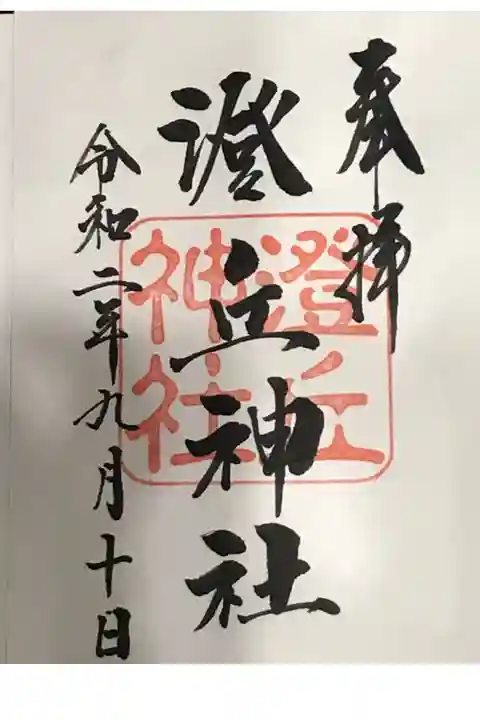 奉拝
澄丘神社
令和二年九月十日
澄丘
神社